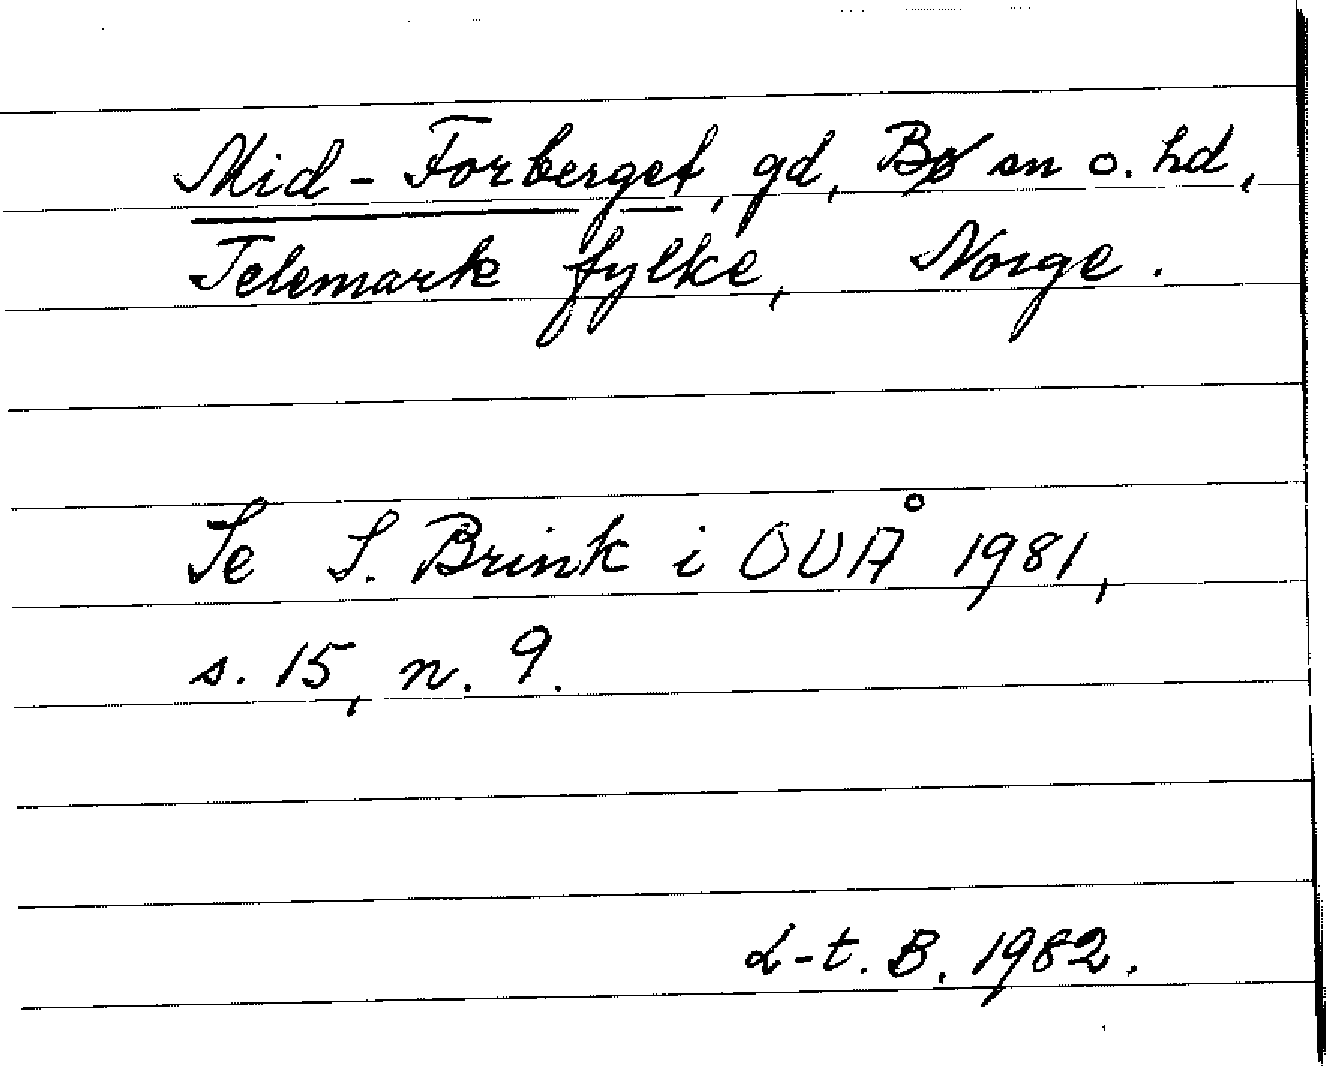 Mid-Forberget, gd, Bø sn o. hd,
Telemark fylke, Norge.
Se S. Brink i OUÅ 1981,
s. 15, n. 9.
L-t. B. 1982.